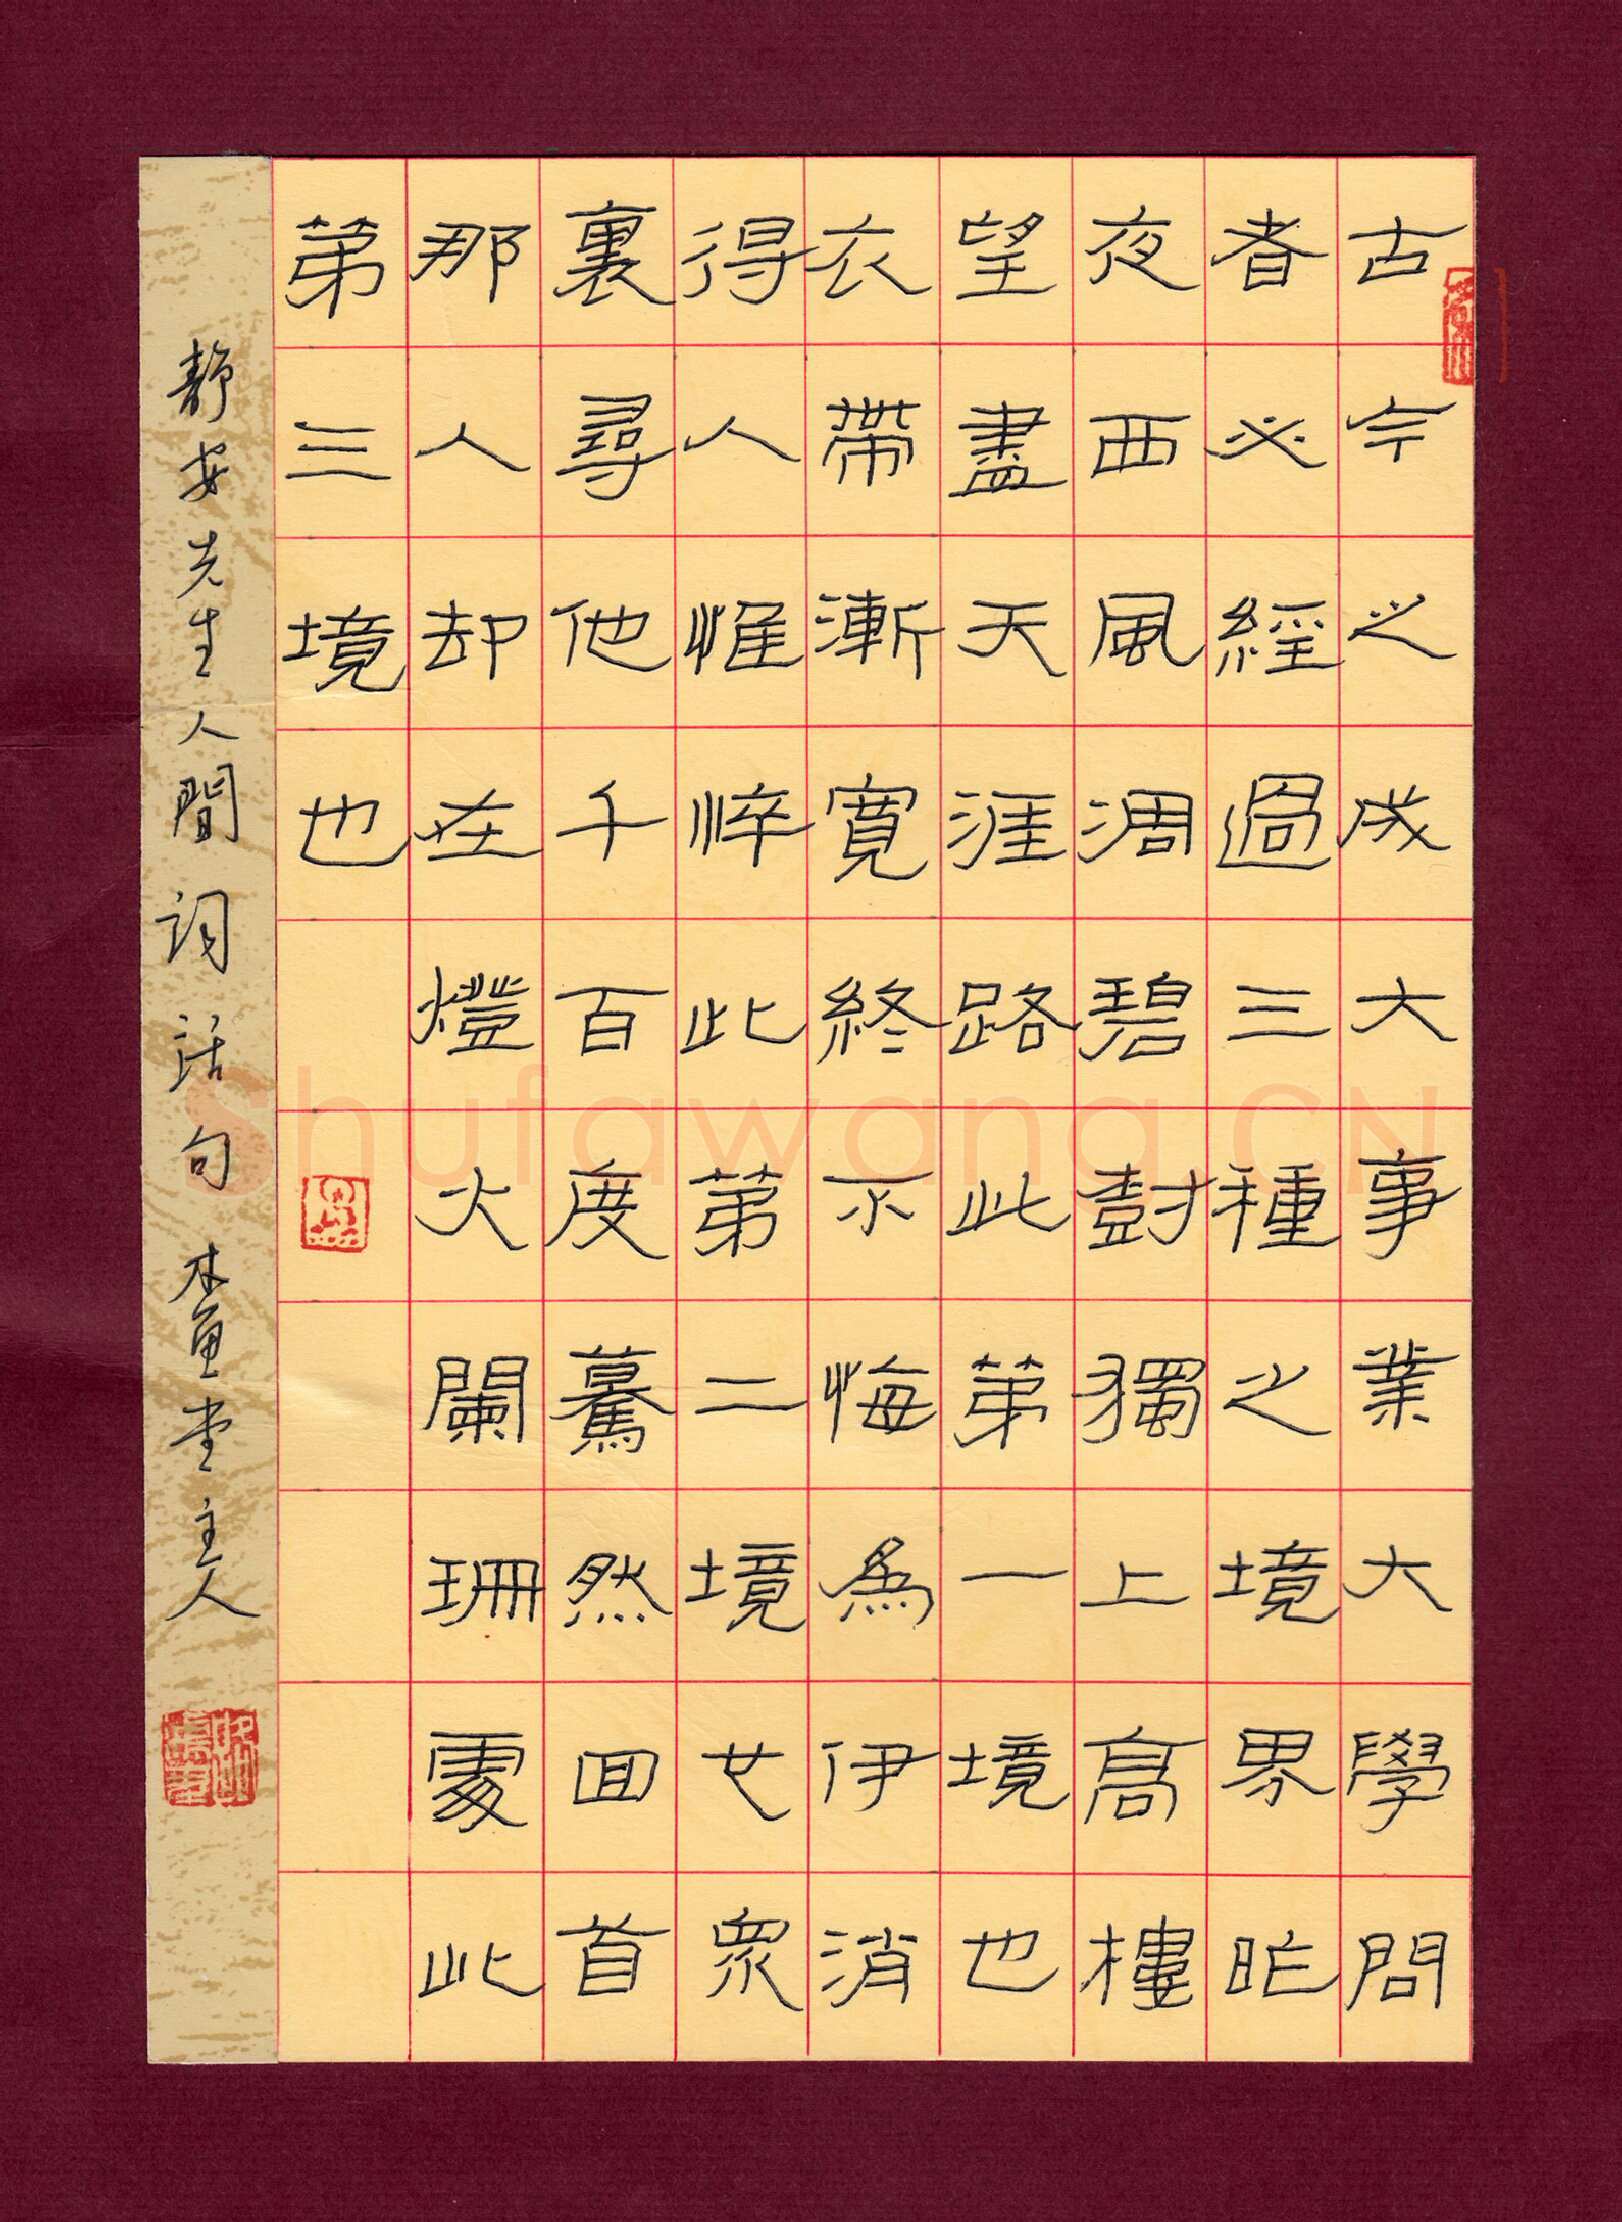 古今之成大事業大學問
者必經過三種之境界昨
夜西風淍碧尌獨上高樓
望盡天涯路此第一境也
衣帶漸寬終不悔為伊消
得人惟悴此第二境也眾
裏尋他千百度驀然回首
那人却在燈火闌珊處此
第三境也
靜安先生人間詞話句 堂主人
Shufawang.CN